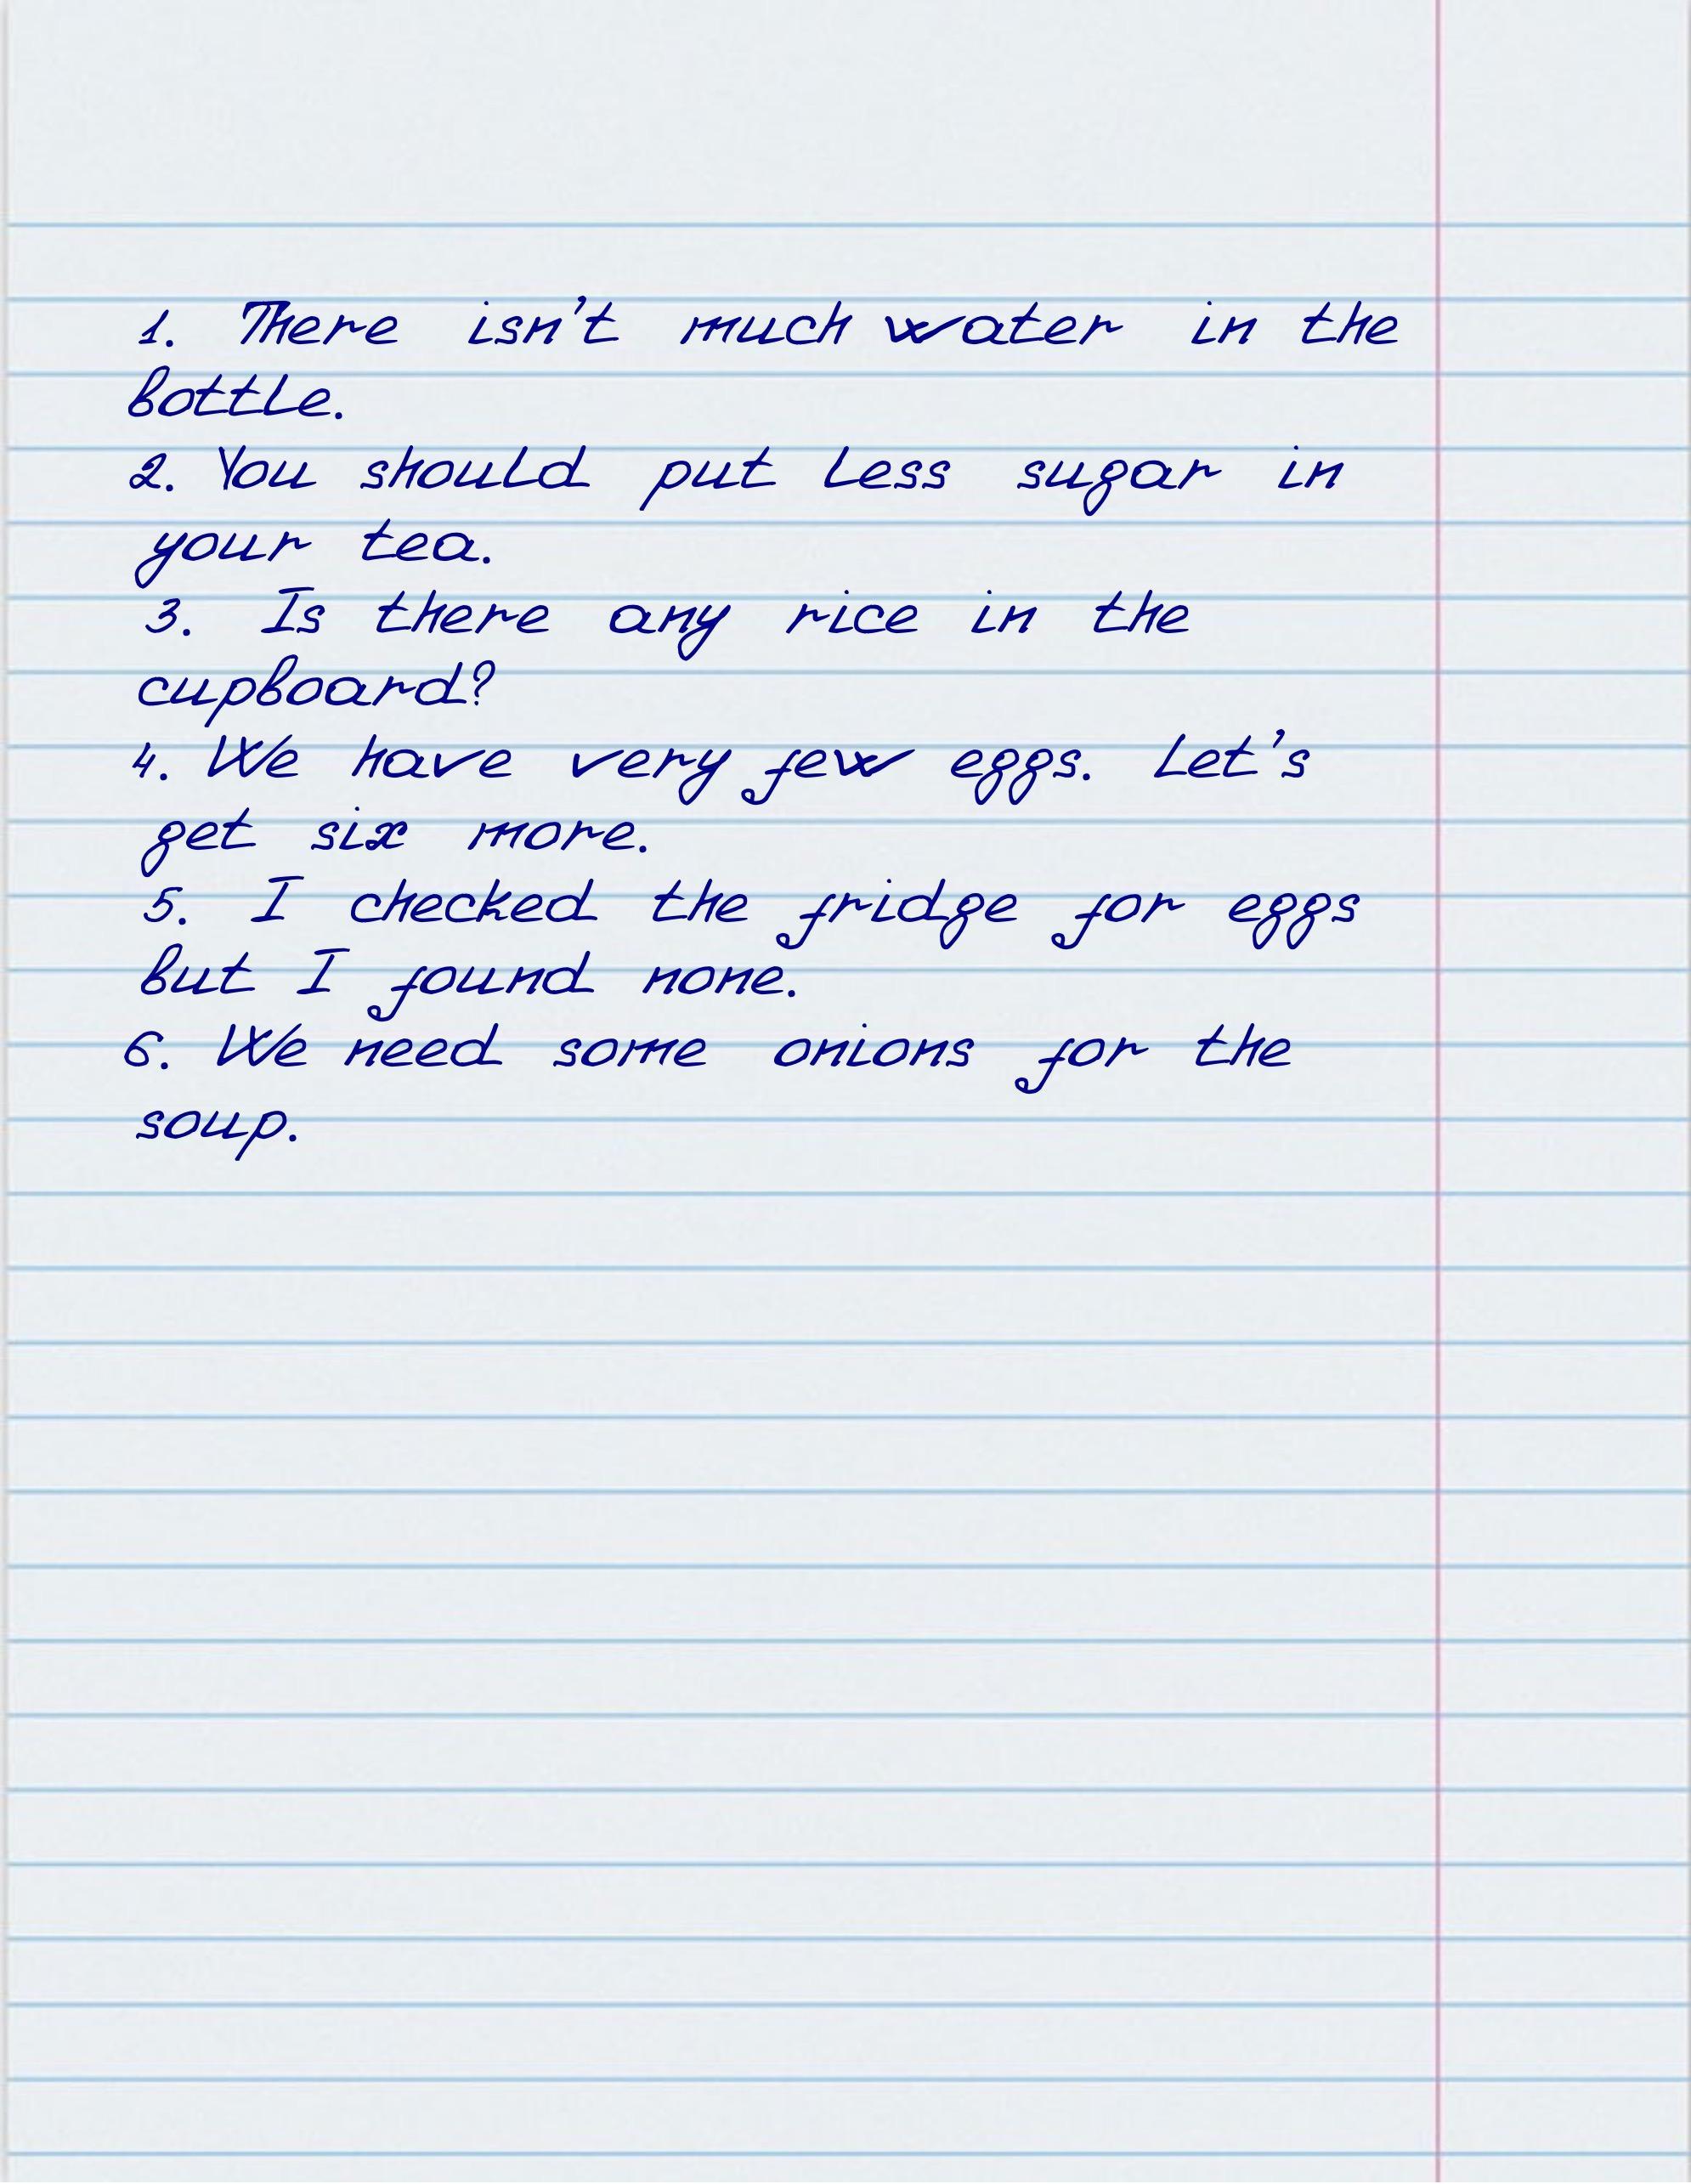 1. There isn't much water in the
bottle.
2. You should put less sugar in
your tea.
3. Is there any rice in the
cupboard?
4. We have very few eggs. Let's
get six more.
5. I checked the fridge for eggs
but I found none.
6. We need some onions for the
soup.